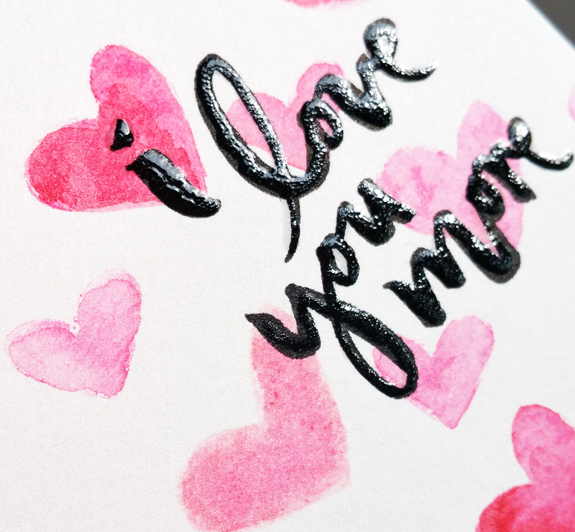 i love
you more